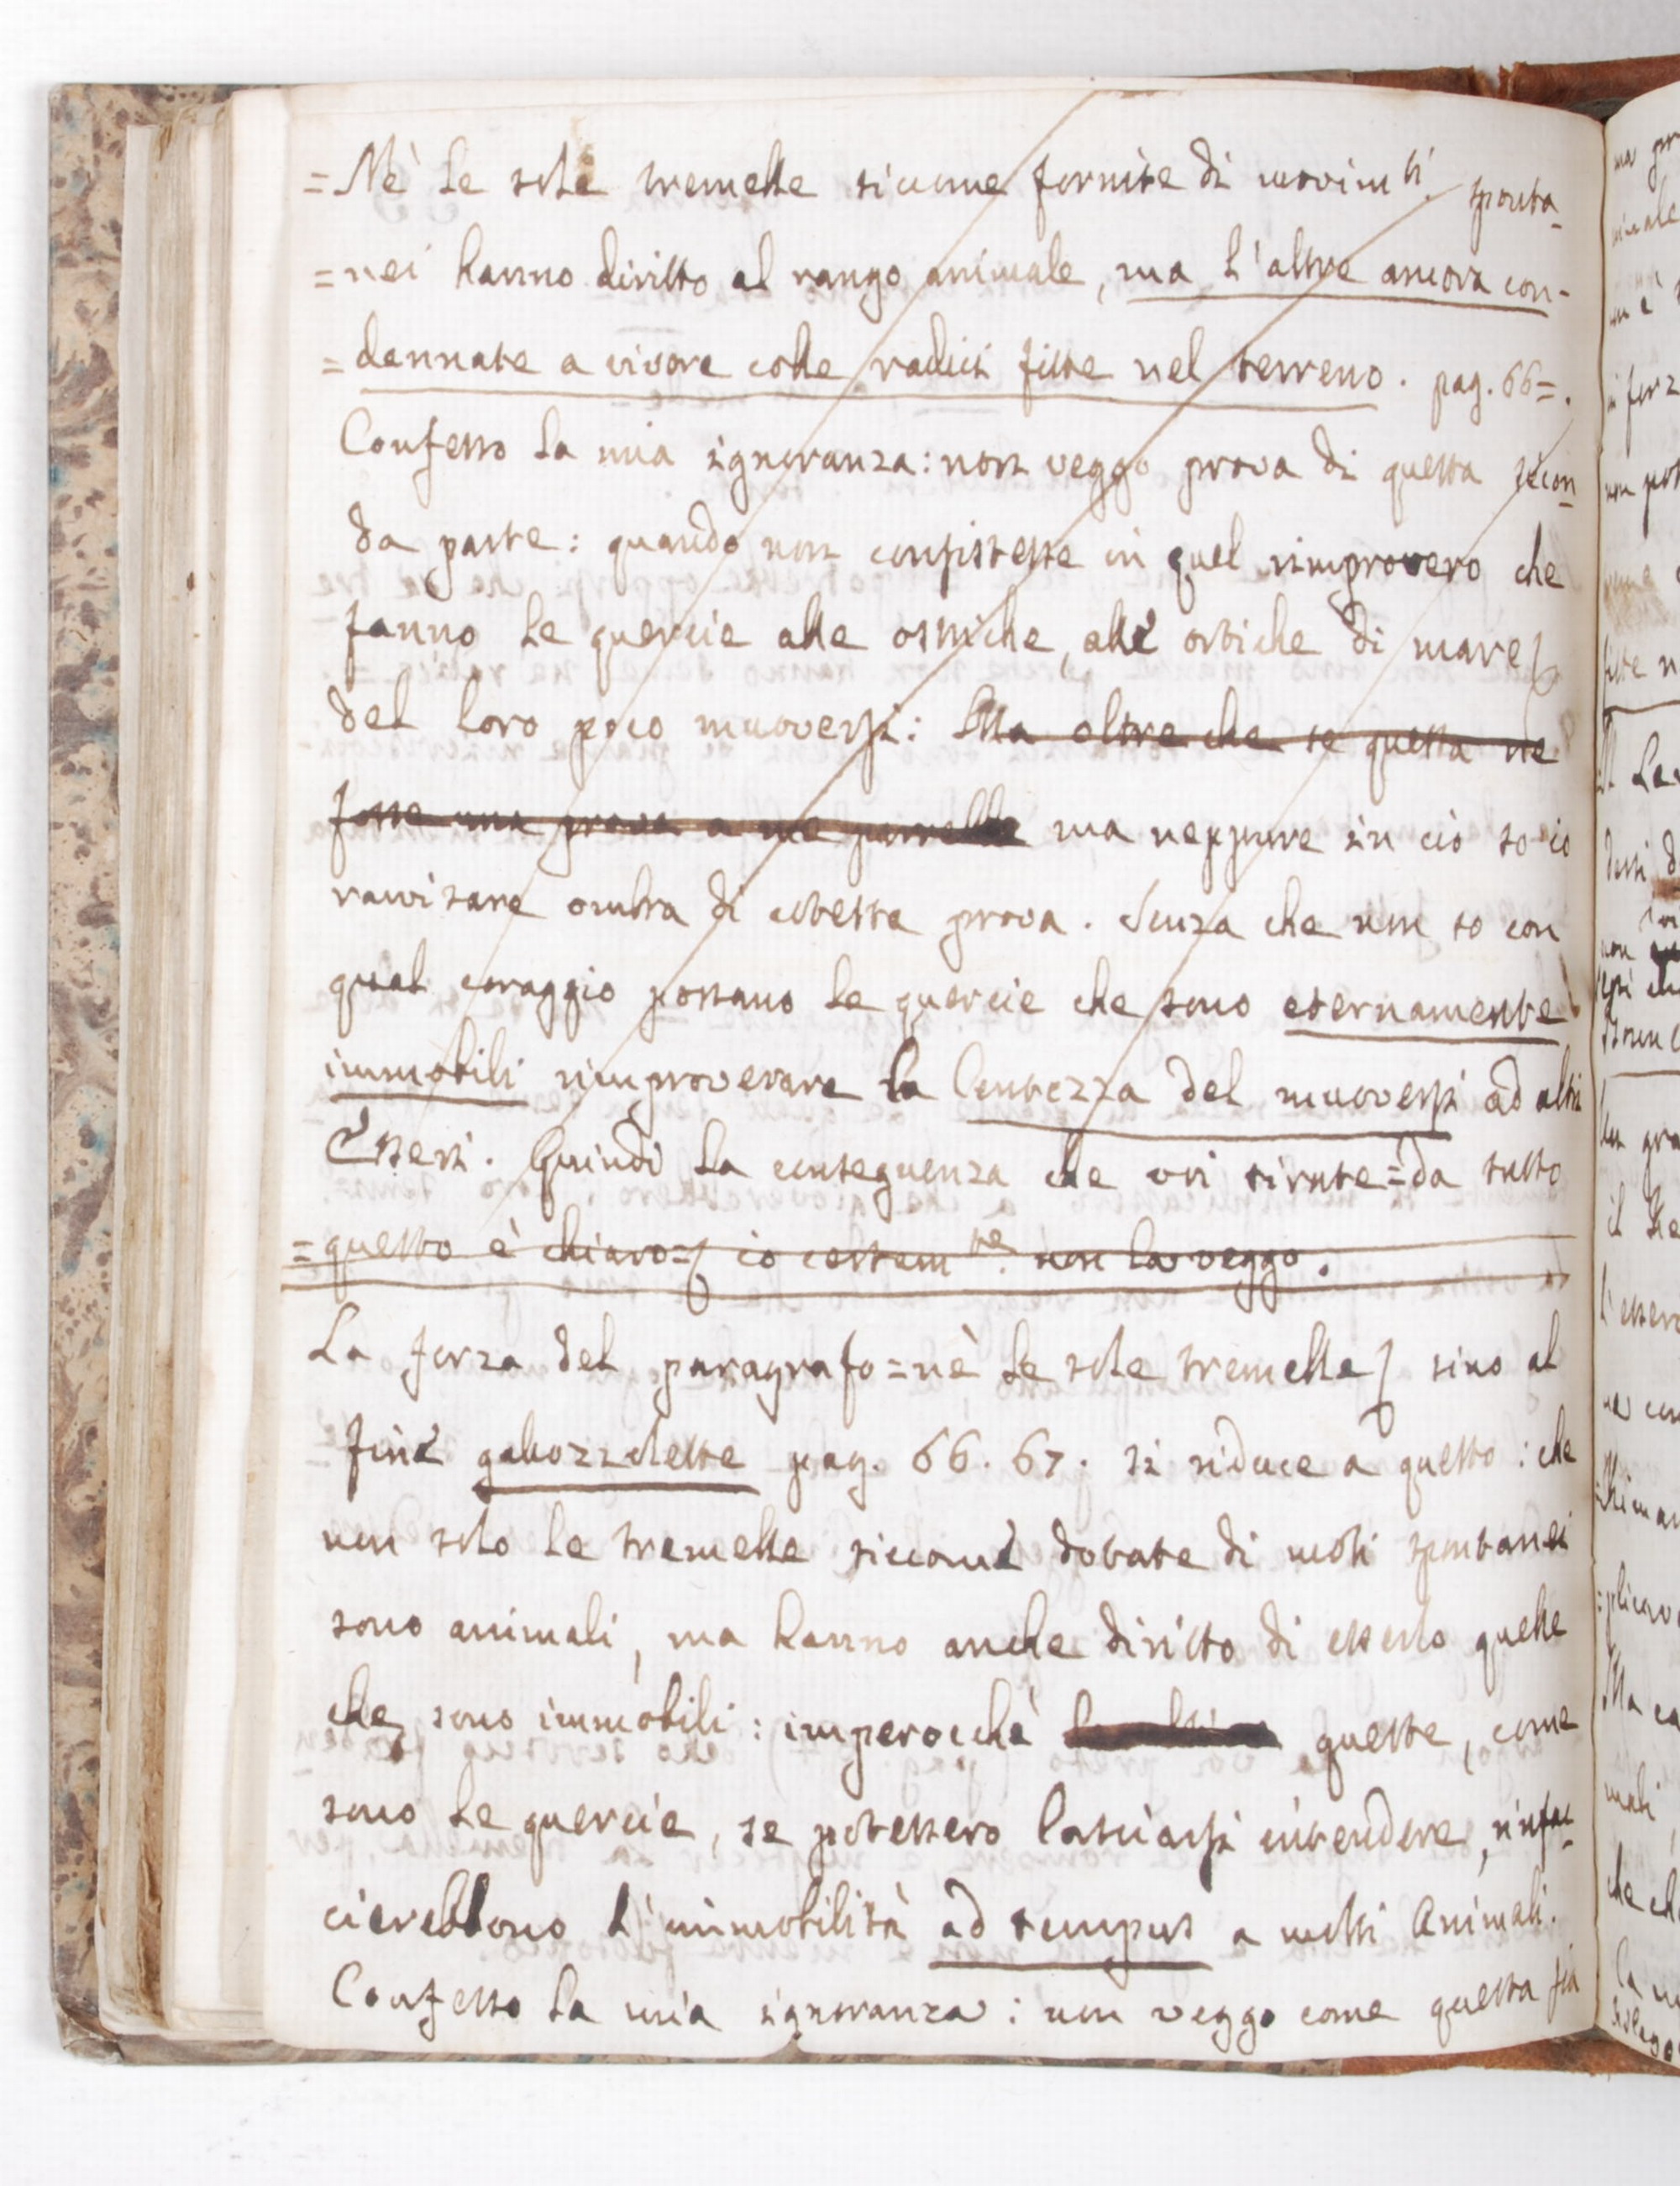 =Nè le sole tremelle siccome fornite di movim.ti sponta-
=nei hanno diritto al rango animale, ma l'altre ancora con-
=dennate a vivere colle radici fitte nel terreno. pag. 66=.
Confesso la mia ignoranza: non veggo prova di questa secon-
da parte: quando non consistesse in quel rimprovero che
fanno le quercie alle ostriche, alle ortiche di mare
del loro poco muoversi: Ma oltre che se questa ne
fosse una prova a me parrebbe ma neppure in ciò so io
ravvisare ombra di cotesta prova. Senza che non so con
qual coraggio possano le quercie che sono eternamente
immobili rimproverare la lentezza del muoversi ad altri
Esseri. Quindi la conseguenza che voi tirate=da tutto
=questo è chiaro= io certam.te non la veggo.
La forza del paragrafo=nè le sole tremelle sino al
fine gabozzolette pag. 66. 67. si riduce a questo: che
non solo le tremelle siccome dotate di moti spontanei
sono animali, ma hanno anche diritto di esserlo quelle
che sono immobili: imperocchè queste, come
sono le quercie, se potessero lasciarsi intendere, rinfac-
cierebbono l'immobilità ad tempus a molti Animali.
Confesso la mia ignoranza: non veggo come questa sia